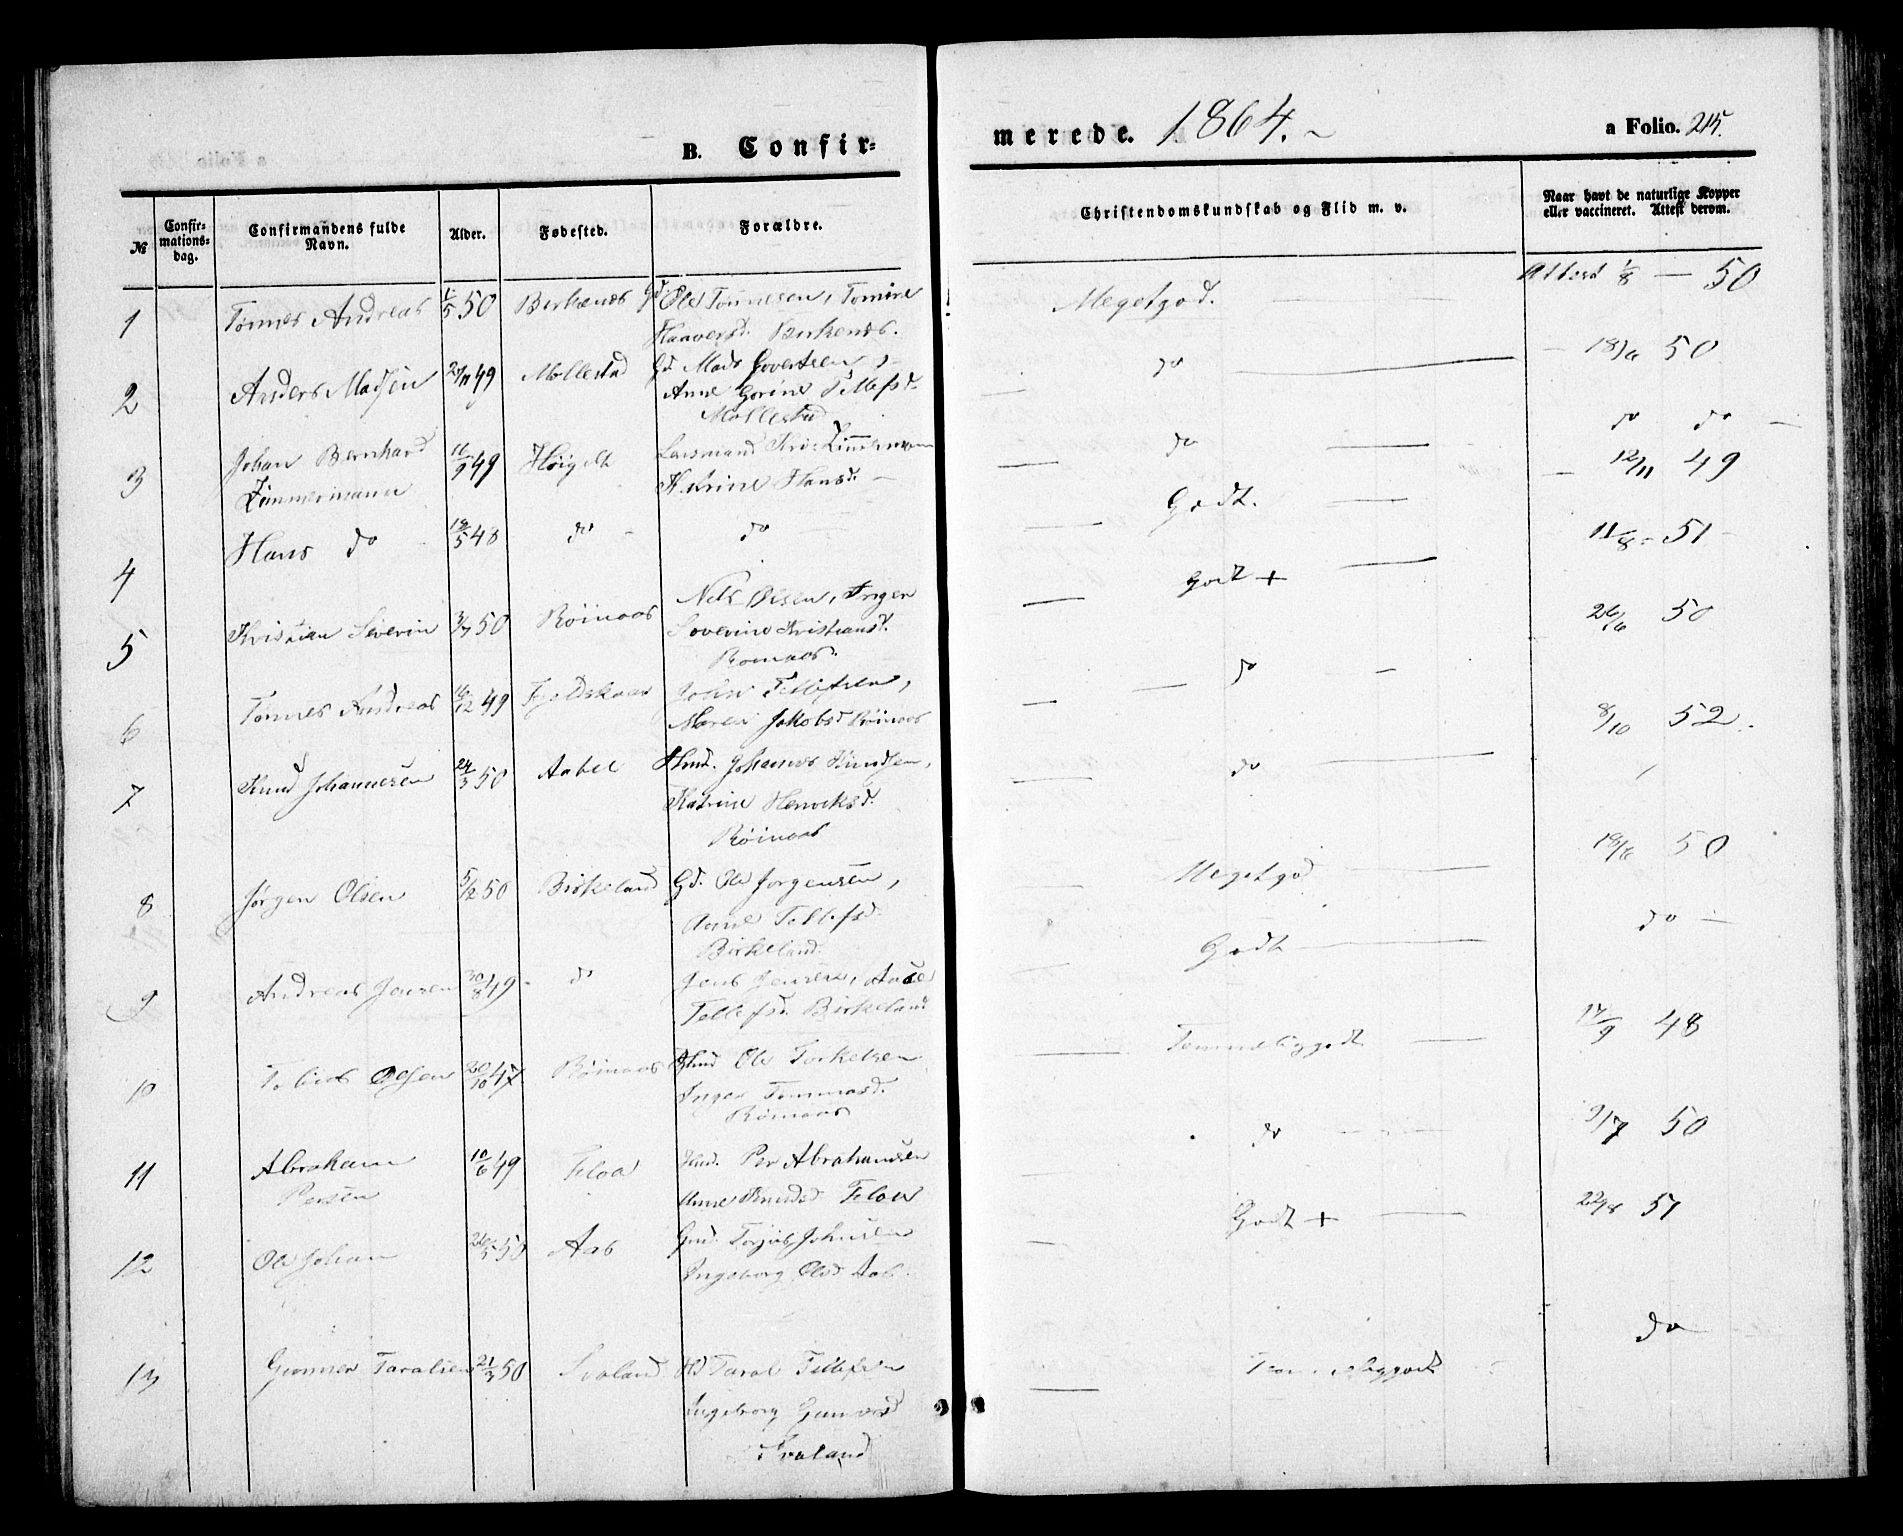 B. Confir=
merede. 1864.
a Folio. 215.
№
Confir-
mations-
dag.
Confirmandens fulde
Navn.
Alder.
Fødested.
Forældre.
Christendomskundskab og Flid m. v.
Naar havt de naturlige Kopper
eller vaccineret. Attest derom.
1 Tønnes Andreas 1/5 50 Birkenes Gd Ole Tønnesen, Tomine Megetgod. Attest 1/8 — 50
Birkenes.
2 Anders Madsen 49 Mollestad Gd Mads Govertsen, do 18/6 50
Anne Gorine Tellefsd.
Mollestad
3 Johan Bernhard 16/9 49 Høigilt Zimmermann do do do
Zimmermann Katrine Hansd.
4 Hans do 18/5 48 do do Godt. 12/11 49
5 Kristian Severin 50 Røinaas Nils Olsen, Inger Godt + 11/8 51
Severine Kristiansd.
Røinaas.
6 Tønnes Andreas 16/12 49 John Tellefsen, do 26/6 50
Maren Jakobsd Røinaas
7 Knud Johannesen 24/3 50 Aabel Hmd. Johannes Knudsen, do 8/10 52.
Katrine Henriksd.
Røinaas
8 Jørgen Olsen 5/12 50 Birkeland Gd. Ole Jørgensen, Megetgod 18/6 50
Anne Tellefsd.
Birkeland.
9 Andreas Jensen 30/8 49 do Jens Jensen, Godt do
Tellefsd. Birkeland
10 Tobias Olsen 20/10 47 Røinaas Hmd Ole Torkelsen Temmeliggodt 17/9 48
Inger Tommasd.
Røinaas
11 Abraham 10/6 49 Floa Hmd. Per Abrahamsen do 9/7 50
Persen Anne Knudsd Floa
12 Ole Johan 50 Aas Gmd. Torjus Johnsen Godt + 22/8 51
Ingeborg Olsd Aas.
13 Gunner Taralsen 21/3 50 Svaland Taral Tellefsen Temmeliggodt do
Ingeborg
Svaland